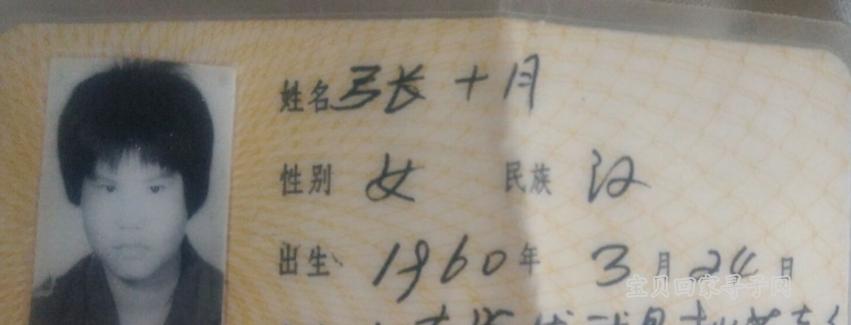 姓名 张十月
性别 女 民族 汉
出生 1960年 3月24日
宝贝回家寻子网